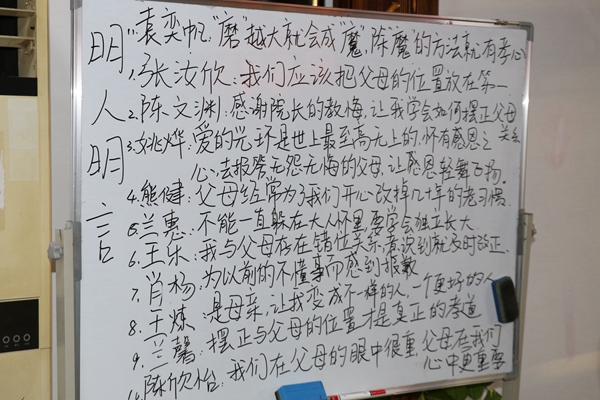 明人明言
袁奕帆:"磨"越大就会成"魔",除"魔"的方法就有孝心
1.张汝欣:我们应该把父母的位置放在第一
2.陈文渊:感谢院长的教诲,让我学会如何摆正父母关系
3.姚烨:爱的光环是世上最至高无上的,怀有感恩之
心,去报答无怨无悔的父母,让感恩轻舞飞扬。
4.熊健:父母经常为了我们开心改掉几十年的老习惯
5.兰惠:不能一直躲在大人怀里,要学会独立长大
6.王乐:我与父母存在错位关系,意识到就及时改正.
7.肖杨:为以前的不懂事而感到抱歉
8.王炼:是母亲,让我变成不一样的人,一个更好的人
9.兰馨:摆正与父母的位置才是真正的孝道
10.陈欣怡:我们在父母的眼中很重,父母在我们
心中更重要